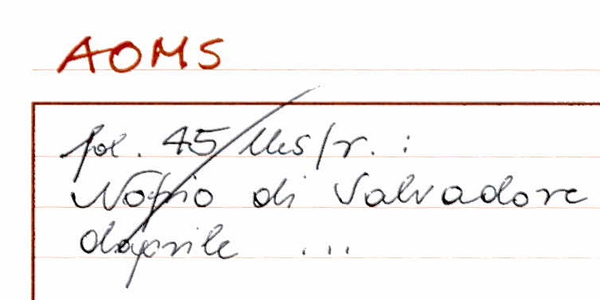 AOMS
fol. 45/Mes/r. :
Nofrio di Salvadore
daprile ...